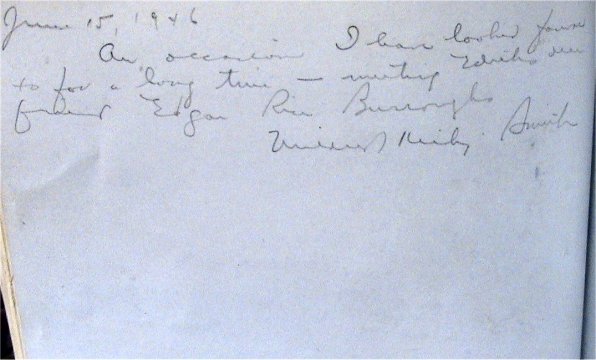 June 15, 1946
An occasion I have looked forward
to for a long time — meeting Edith's dear
friend Edgar Rice Burroughs
Mildred Smith